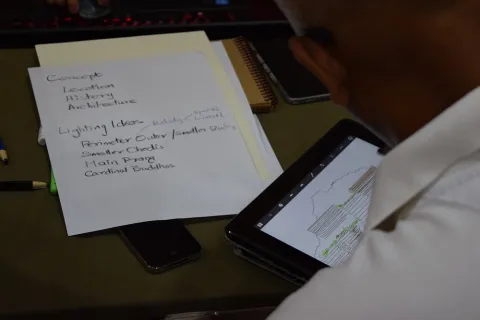 Concept
Location
History
Architecture
Lighting Ideas
Perimeter Outer / smaller
Smaller Chedis
Main Prang
Cardinal Buddhas